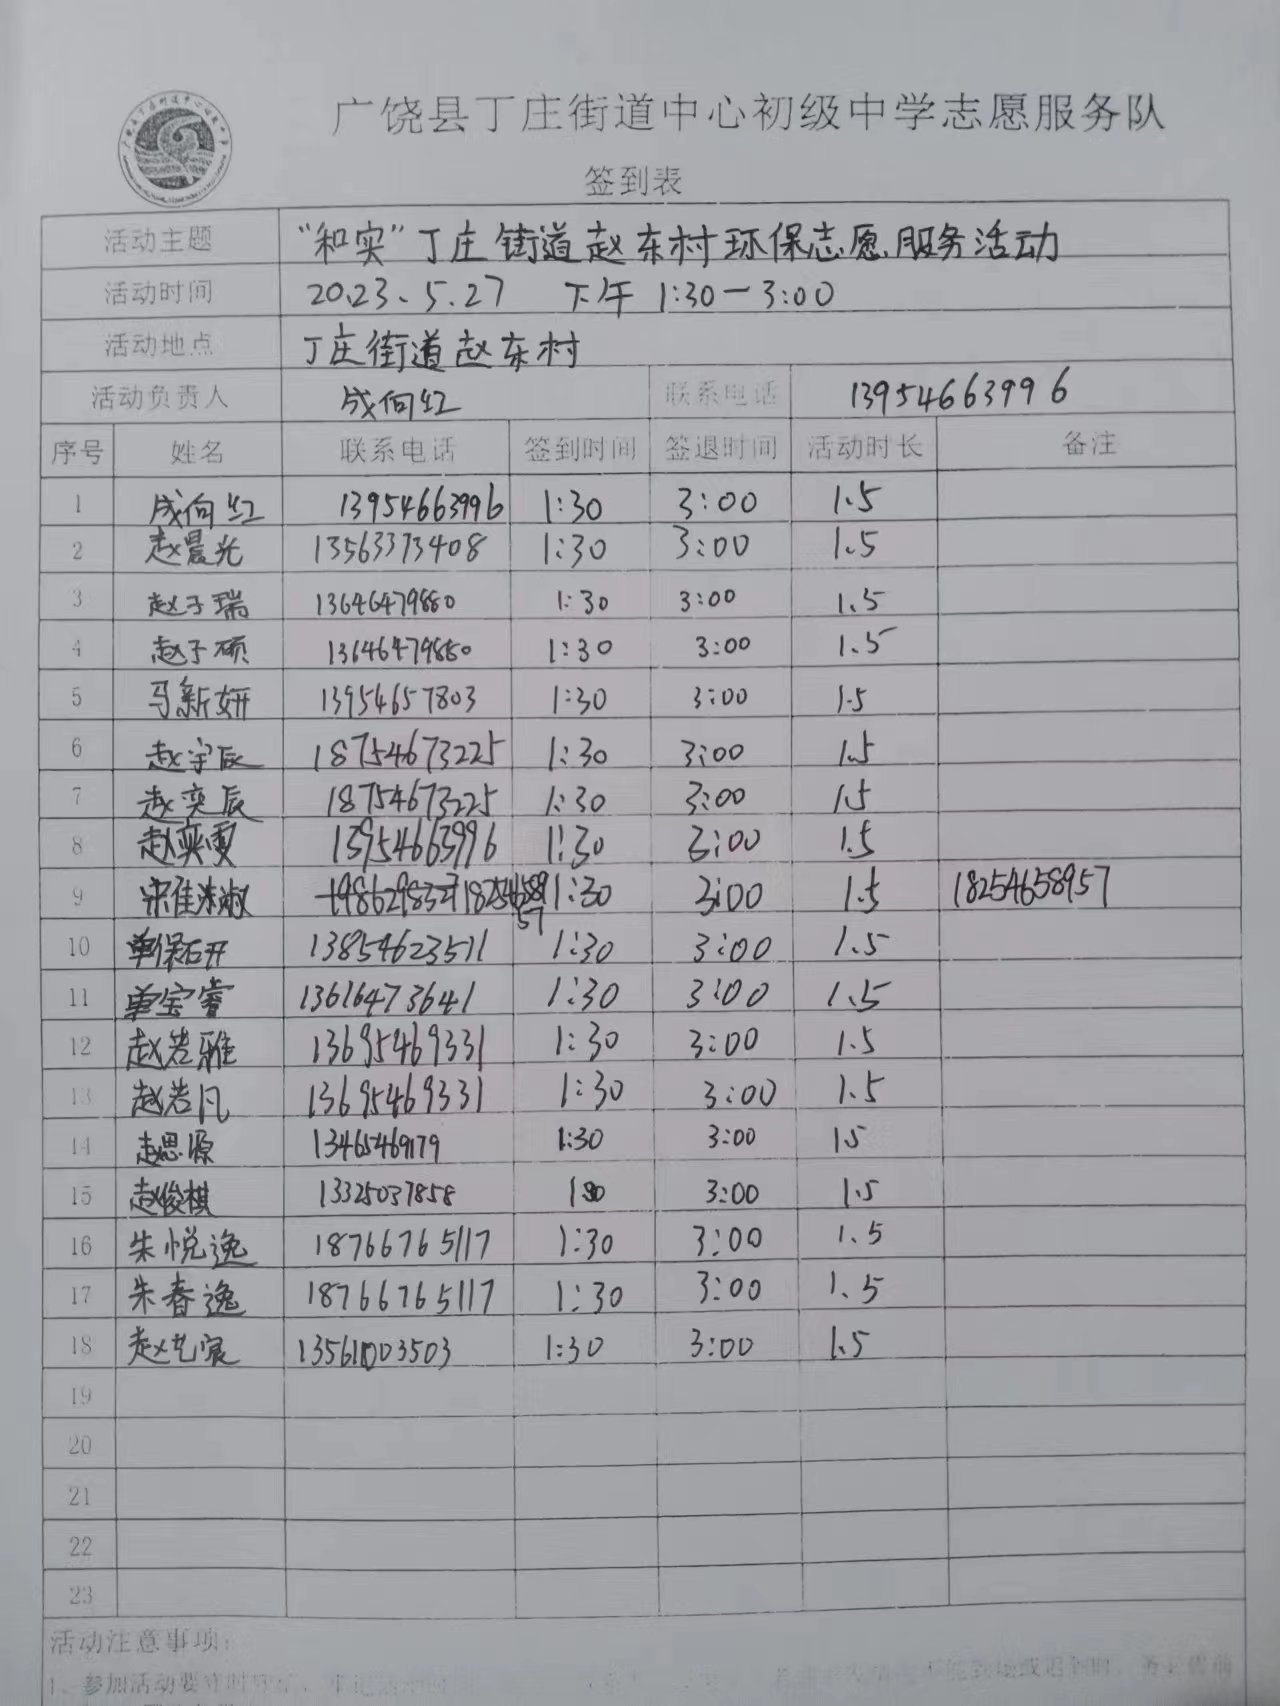 广饶县丁庄街道中心初级中学志愿服务队
签到表
活动主题 “和实”丁庄街道赵东村环保志愿服务活动
活动时间 2023.5.27 下午 1:30-3:00
活动地点 丁庄街道赵东村
活动负责人 成向红 联系电话 13954663996
序号 姓名 联系电话 签到时间 签退时间 活动时长 备注
1 成向红 13954663996 1:30 3:00 1.5
2 赵晨光 13563373408 1:30 3:00 1.5
3 赵子瑞 13646479880 1:30 3:00 1.5
4 赵子硕 13646479880 1:30 3:00 1.5
5 马新妍 13954657803 1:30 3:00 1.5
6 赵宇辰 18754673225 1:30 3:00 1.5
7 赵奕辰 18754673225 1:30 3:00 1.5
8 赵奕雯 13954663996 1:30 3:00 1.5
9 宋佳沫淑 198629832718254658957 1:30 3:00 1.5 18254658957
10 单保石开 13854623511 1:30 3:00 1.5
11 单宝睿 13616473641 1:30 3:00 1.5
12 赵若雅 13695469331 1:30 3:00 1.5
13 赵若凡 13695469331 1:30 3:00 1.5
14 赵思源 13465469179 1:30 3:00 1.5
15 赵俊棋 13325037858 1:30 3:00 1.5
16 朱悦逸 18766765117 1:30 3:00 1.5
17 朱春逸 18766765117 1:30 3:00 1.5
18 赵艺宸 13561003503 1:30 3:00 1.5
19
20
21
22
23
活动注意事项：
1、参加活动要守时